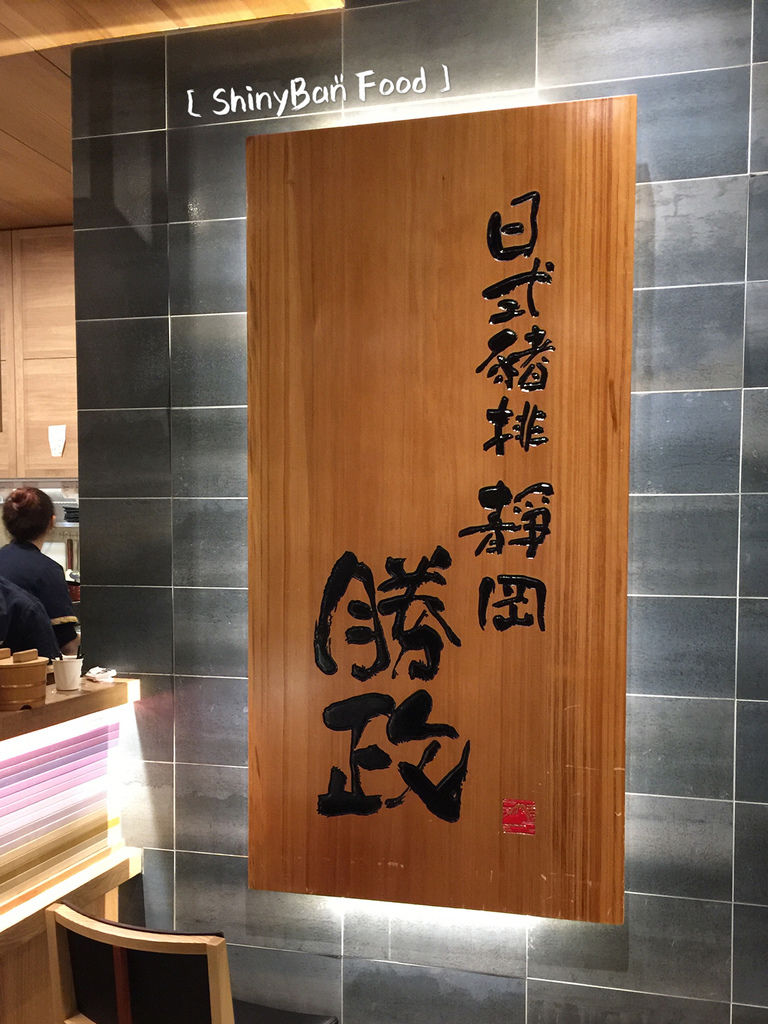 [ ShinyBan Food ]
日式豬排 靜岡
勝政